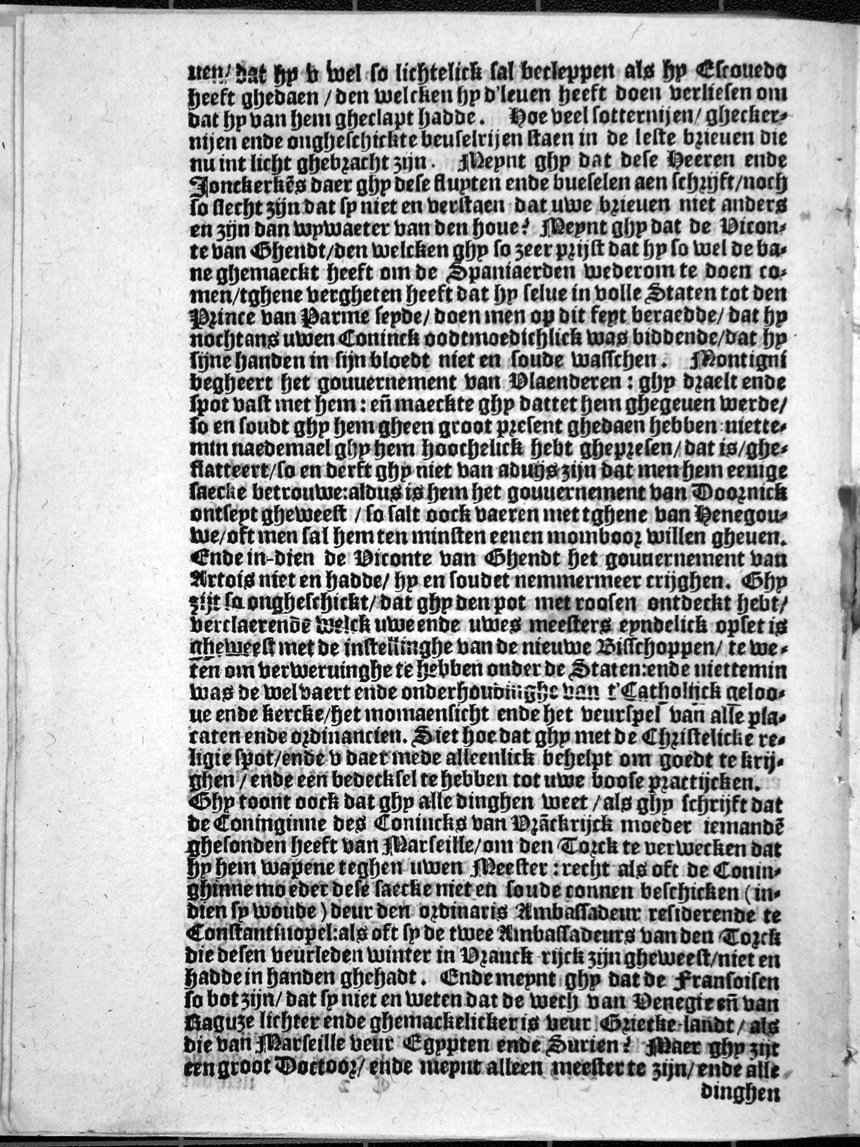 uen/ dat hy v wel so lichtelick sal becleppen als hy Escouedo
heeft ghedaen / den welcken hy d'leuen heeft doen verliesen om
dat hy van hem gheclapt hadde. Hoe veel sotternijen/ ghecker-
nijen ende ongheschickte beuselrijen staen in de leste brieuen die
nu int licht ghebracht zijn. Meynt ghy dat dese Heeren ende
Jonckerkēs daer ghy dese fluyten ende bueselen aen schrijft/noch
so slecht zijn dat sy niet en verstaen dat uwe brieuen niet anders
en zijn dan wywaeter van den houe? Meynt ghy dat de Vicon-
te van Ghendt/den welcken ghy so zeer prijst dat hy so wel de ba-
ne ghemaeckt heeft om de Spaniaerden wederom te doen co-
men/tghene vergheten heeft dat hy selue in volle Staten tot den
Prince van Parme seyde/ doen men op dit feyt beraedde/ dat hy
nochtans uwen Coninck oodtmoedichlick was biddende/dat hy
sijne handen in sijn bloedt niet en soude wasschen. Montigni
begheert het gouuernement van Vlaenderen : ghy draelt ende
spot vast met hem : eñ maeckte ghy dattet hem ghegeuen werde/
so en soudt ghy hem gheen groot present ghedaen hebben: niette-
min naedemael ghy hem hoochelick hebt ghepresen/ dat is/ghe-
flatteert/so en derft ghy niet van aduijs zijn dat men hem eenige
saecke betrouwe:aldus is hem het gouuernement van Doornick
ontseyt gheweest / so salt oock vaeren met tghene van Henegou-
we/oft men sal hem ten minsten eenen momboor willen gheuen.
Ende in-dien de Viconte van Ghendt het gouuernement van
Artois niet en hadde/ hy en soudet nemmermeer crijghen. Ghy
zijt so ongheschickt/ dat ghy den pot met roosen ontdeckt hebt/
verclaerende welck uwe ende uwes meesters eyndelick opset is
gheweest met de instellinghe van de nieuwe Bisschoppen/ te we-
ten om verweruinghe te hebben onder de Staten:ende niettemin
was de welvaert ende onderhoudinghe van t'Catholijck geloo-
ue ende kercke/het momaensicht ende het veurspel van alle pla-
caten ende ordinancien. Siet hoe dat ghy met de Christelicke re-
ligie spot/ende v daer mede alleenlick behelpt om goedt te krij-
ghen / ende een bedecksel te hebben tot uwe boose practijcken.
Ghy toont oock dat ghy alle dinghen weet / als ghy schrijft dat
de Coninginne des Conincks van Vrāckrijck moeder iemandē
ghesonden heeft van Marseille/om den Torck te verwecken dat
hy hem wapene teghen uwen Meester : recht als oft de Conin-
ghinne moeder dese saecke niet en soude connen beschicken ( in-
dien sy woude ) deur den ordinaris Ambassadeur residerende te
Constantinopel:als oft sy de twee Ambassadeurs van den Torck
die desen veurleden winter in Vranck rijck zijn gheweest/niet en
hadde in handen ghehadt. Ende meynt ghy dat de Fransoisen
so bot zijn/ dat sy niet en weten dat de wech van Venegie eñ van
Raguze lichter ende ghemackelicker is veur Griecke-landt / als
die van Marseille veur Egypten ende Surien? Maer ghy zijt
een groot Doctoor/ ende meynt alleen meester te zijn/ ende alle
dinghen